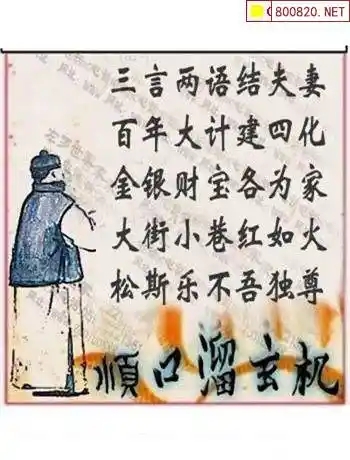 800820.NET
三言两语结夫妻
百年大计建四化
金银财宝各为家
大街小巷红如火
松斯乐不吾独尊
順口溜玄机